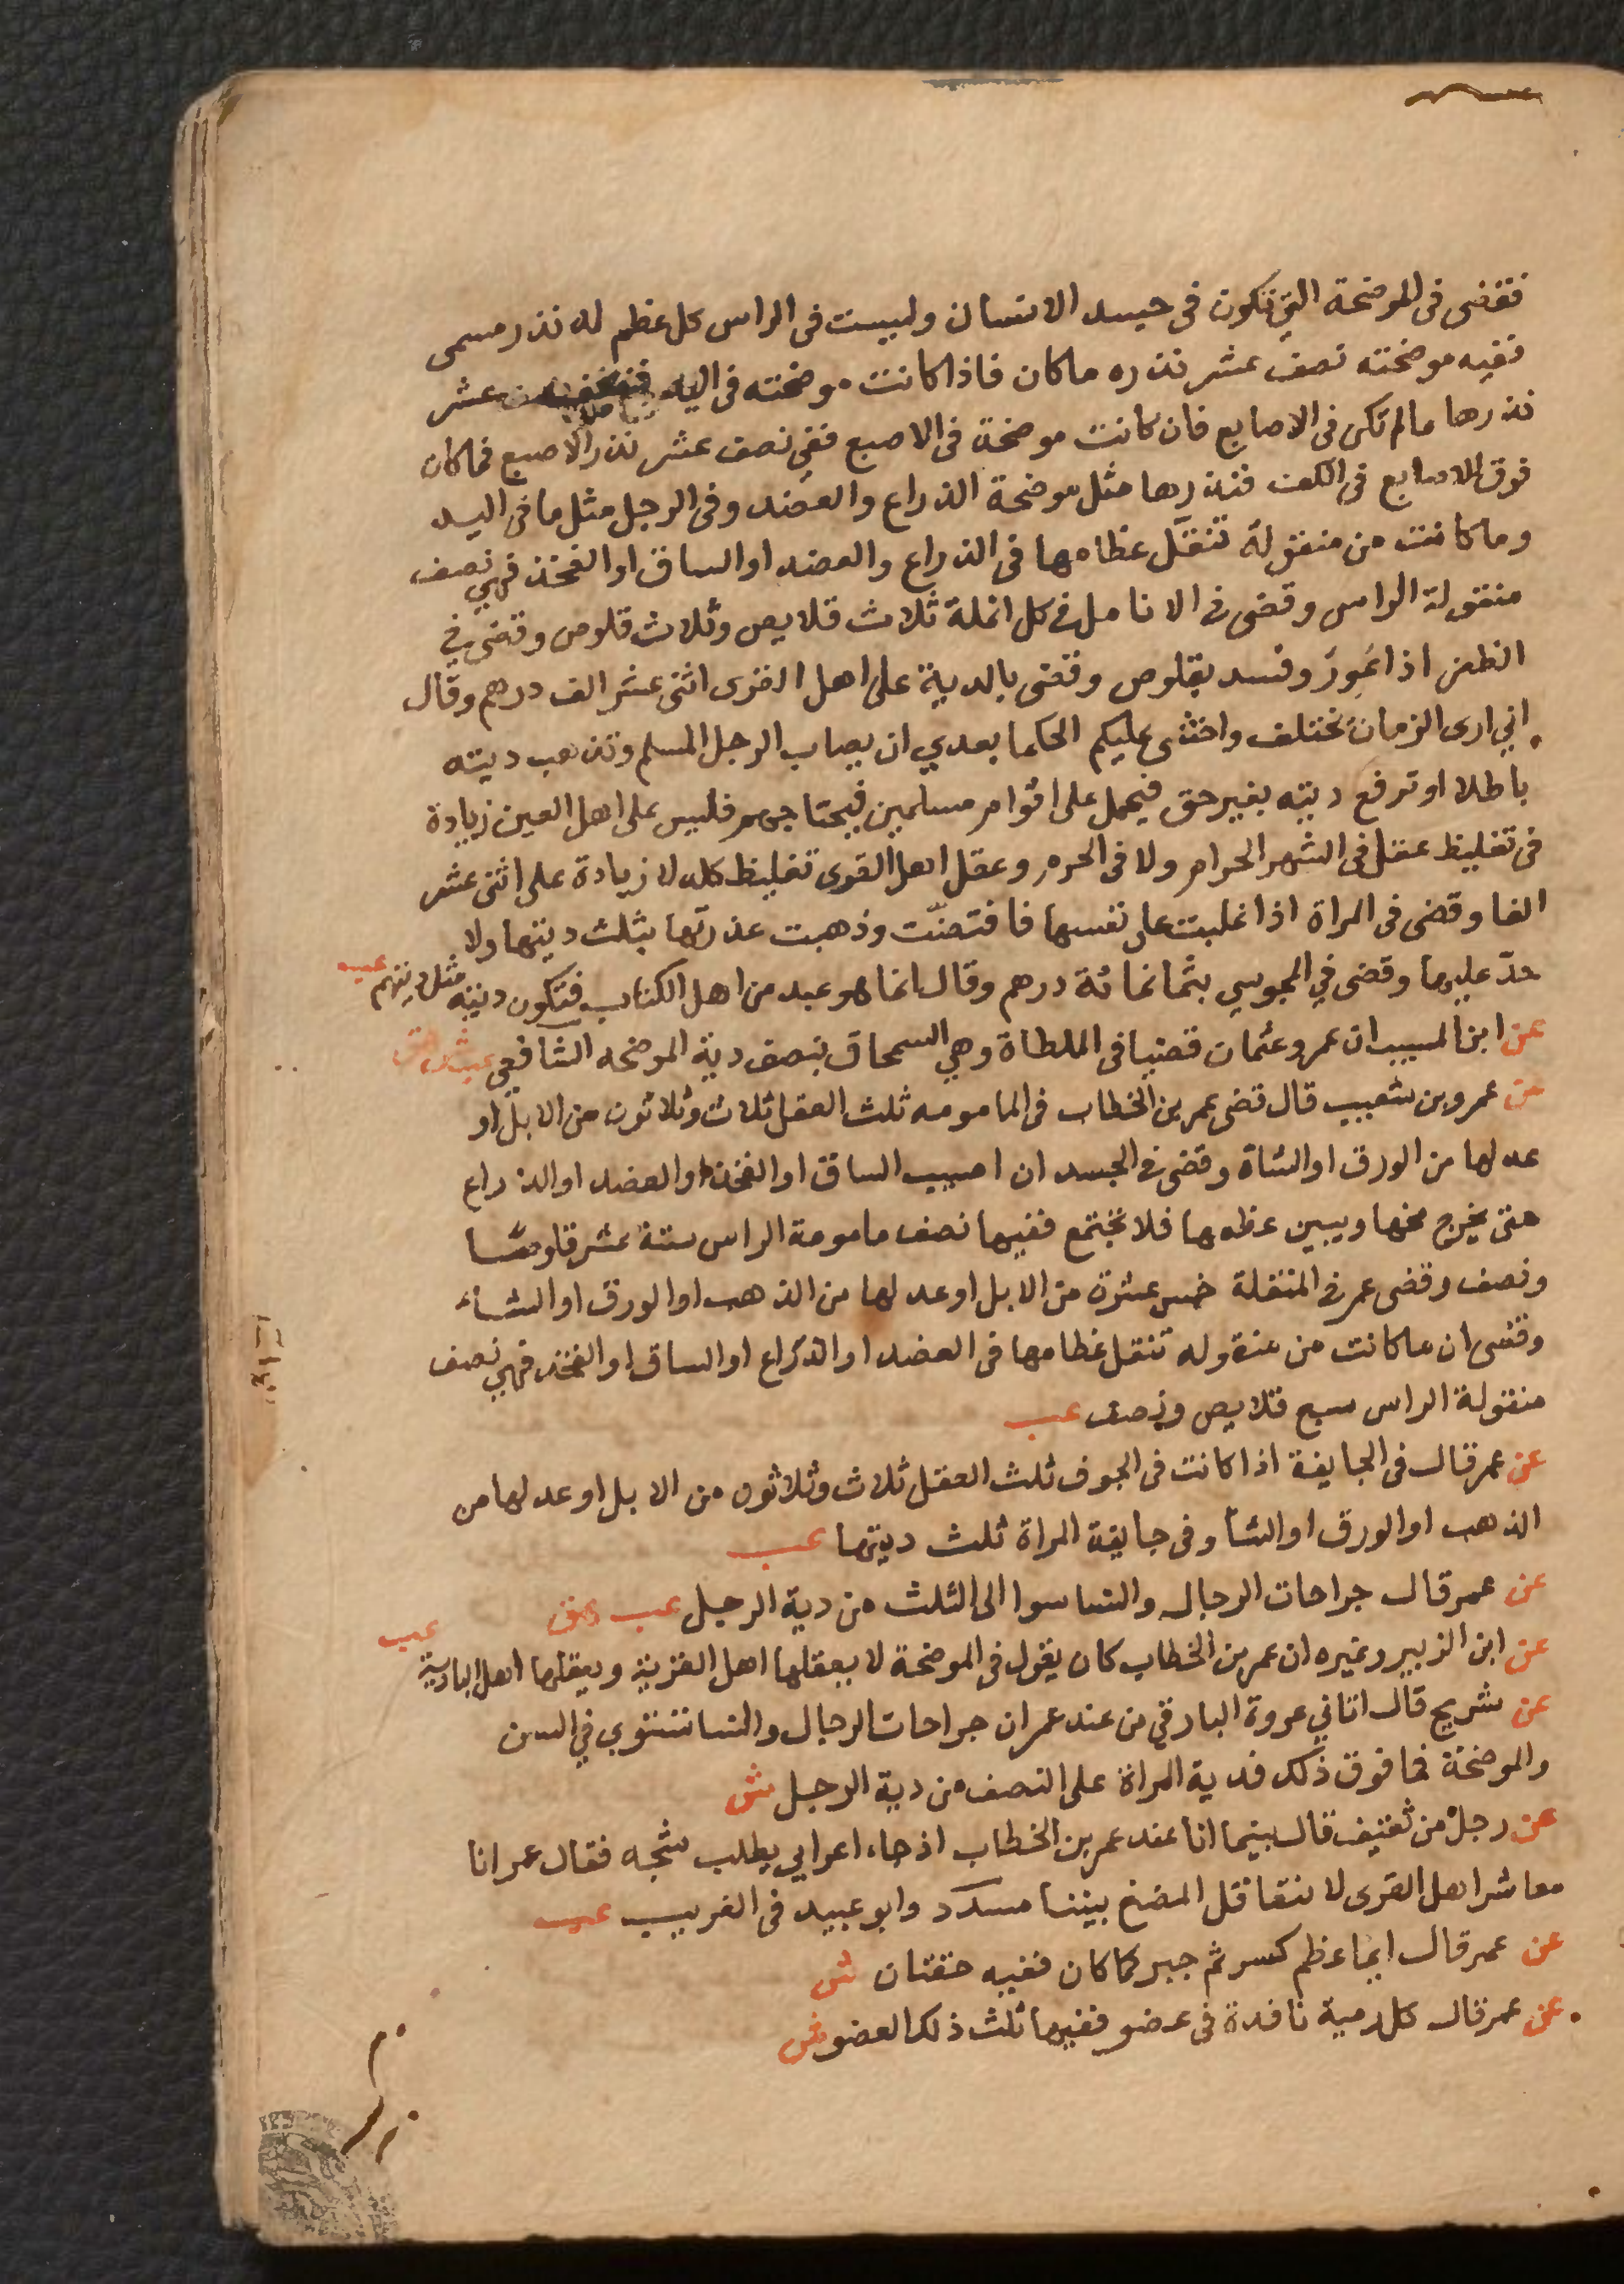 فقضى في الموضحة التي تكون في جسد الانسان وليست في الراس كل عظم له نذر مسمى
ففيه موضحته نصف عشر نذره ماكان فاذا كانت موضحته في اليد عشر
نذرها مالم تكن في الاصابع فان كانت موضحة في الاصبع ففي نصف عشر نذر الاصبع فماكان
فوق الاصابع في الكف فنذرها مثل موضحة الذراع والعضد وفي الرجل مثل ما في اليد
وما كانت من منقولة تنقل عظامها في الذراع والعضد او الساق او الفخذ فهي نصف
منقولة الراس وقضى في الانامل في كل انملة ثلاث قلايص وثلاث قلوص وقضى في
الظفر اذا اعور وفسد بقلوص وقضى بالدية على اهل القرى اثنى عشر الف درهم وقال
اني ارى الزمان تختلف واخشى عليكم الحكام بعدي ان يصاب الرجل المسلم وتذهب ديته
باطلا او ترفع ديته بغير حق فيحمل على اقوام مسلمين فيجتاحهم فليس على اهل العين زيادة
في تغليظ عقل في الشهر الحرام ولا في الحرم وعقل اهل القرى تغليظ كله لا زيادة على اثنى عشر
الفا وقضى في المراة اذا غلبت على نفسها فافتضت وذهبت عذرتها بثلث ديتها ولا
حد عليها وقضى في المجوسي بثمانمائة درهم وقال انما هو عبد من اهل الكتاب فتكون ديته مثل ديتهم عب
عن ابن المسيب ان عمر وعثمان قضيا في الملطاة وهي السمحاق بنصف دية الموضحه الشافعي عب ش هق
عن عمرو بن شعيب قال قضى عمر بن الخطاب في المامومه ثلث العقل ثلاث وثلاثون من الابل او
عدلها من الورق او الشاة وقضى في الجسد ان اصيب الساق او الفخذ او العضد او الذراع
حتى يخرج مخها ويبين عظمها فلا تجتمع ففيها نصف مامومة الراس ستة عشر قلوصا
ونصف وقضى عمر في المنقلة خمس عشرة من الابل او عدلها من الذهب او الورق او الشاء
وقضى ان ماكانت من منقوله تنقل عظامها في العضد او الذراع او الساق او الفخذ فهي نصف
منقولة الراس سبع قلايص ونصف عب
عن عمر قال في الجايفة اذا كانت في الجوف ثلث العقل ثلاث وثلاثون من الابل او عدلها من
الذهب او الورق او الشا وفي جايفة المراة ثلث ديتها عب
عن عمر قال جراحات الرجال والنسا سوا الى الثلث من دية الرجل عب هق
عن ابن الزبير وغيره ان عمر بن الخطاب كان يقول في الموضحة لا يعقلها اهل القرية ويعقلها اهل البادية عب
عن شريح قال اتاني عروة البارقي من عند عمر ان جراحات الرجال والنسا تستوي في السن
والموضحة فما فوق ذلك فدية المراة على النصف من دية الرجل ش
عن رجل من ثقيف قال بينما انا عند عمر بن الخطاب اذ جاء اعرابي يطلب شجه فقال عمر انا
معاشر اهل القرى لا نتعاقل المضغ بيننا مسدد وابو عبيد في الغريب عب
عن عمر قال ايما عظم كسر ثم جبر كما كان ففيه حقتان ش
عن عمر قال كل رمية نافدة في عضو ففيها ثلث ذلك العضو ش